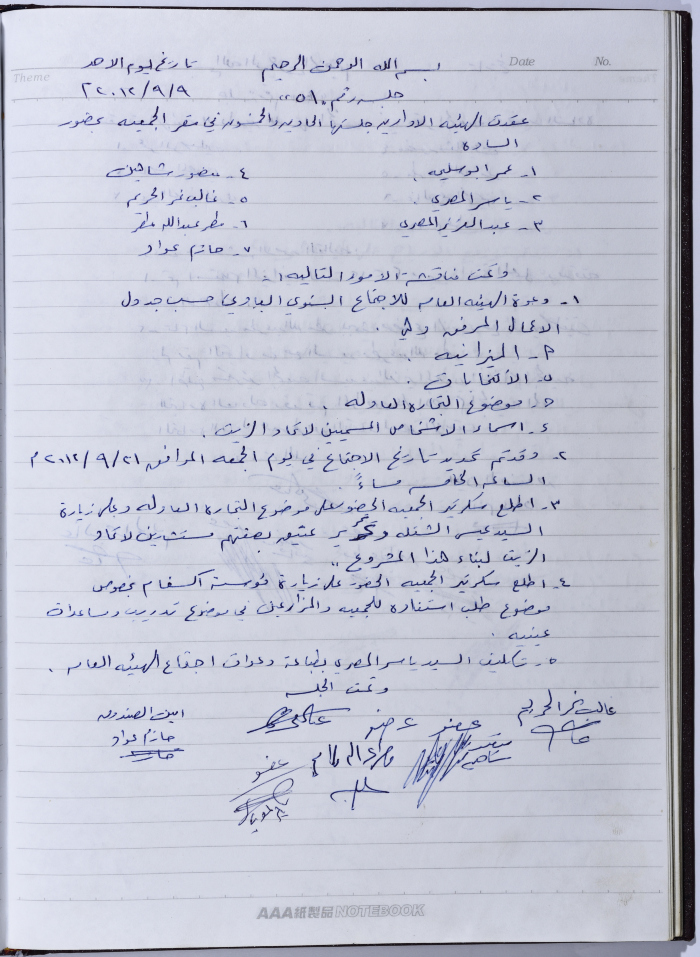 Theme Date No.
بسم الله الرحمن الرحيم تاريخ ليوم الاحد
جلسه رقم "٥١" ٢٠١٢/٩/٩
عقدت الهيئه الاداريه جلستها الحاديه والخمسون في مقر الجمعيه بحضور
الساده
١- عمر ابو سليم ٤- منصور شاهين
٢- ياسر المصري ٥- غالب نمر الحريم
٣- عبد العزيز المصري ٦- مطر عبدالله مطر
٧- حازم عواد
وتمت مناقشه الامور التاليه:
١- دعوة الهيئه العامه للاجتماع السنوي العادي حسب جدول
الاعمال المرفق وهي
٢- الميزانيه
ب- الأنتخابات
ح- موضوع التجاره العادله.
ء- اسماء الاشخاص المسميين لاتحاد الزيت.
٢- وقد تم تحديد تاريخ الاجتماع في يوم الجمعه الموافق ٢٠١٢/٩/٢١م
الساعه الخامسه مساءً.
٣- اطلع سكرتير الجمعيه الحضور على موضوع التجاره العادله وعلى زيارة
السيد عيسى الشتله و عتيق بصفتهم مستشارين لاتحاد
الزيت لبناء هذا المشروع"
٤- اطلع سكرتير الجمعيه الحضور على زيارة مؤسسة اكسفام بخصوص
موضوع طلب استفاده للجمعيه والمزارعين في موضوع تدريب ومساعدات
عينيه.
٥- تكليف السيد ياسر المصري بطباعة دعوات اجتماع الهيئه العامه.
وتمت الجلسه
غالب نمر الحريم عضو عضو امين الصندوق
منصور شاهين حازم عواد
عضو حازم
AAA紙製品 NOTEBOOK